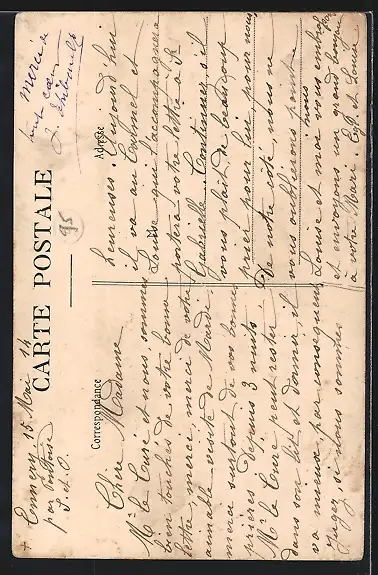 + Ennery 15 Mai 14
par Pontoise
S. & O.
CARTE POSTALE
Merci à
tout cœur
J. Thibault
95
Correspondance
Adresse
Chère Madame
Mr le Curé et nous sommes
bien touchés de votre bonne
lettre, merci, merci de votre
aimable visite de Mardi
merci surtout de vos bonnes
prières. Depuis 3 nuits
Mr le Curé peut rester
dans son lit et dormir, il
va mieux par conséquent
Jugez si nous sommes
heureuses. Aujourd'hui
il va au Continet et
Louise qui l'accompagnera
portera votre lettre à Sr
Gabrielle. Continuez, s'il
vous plait de beaucoup
prier pour lui, pour nous
De notre côté, nous ne
vous oublierons point
Louise et moi vous embras
et envoyons un grand bonjour
à votre Mari. E. J. et Louise